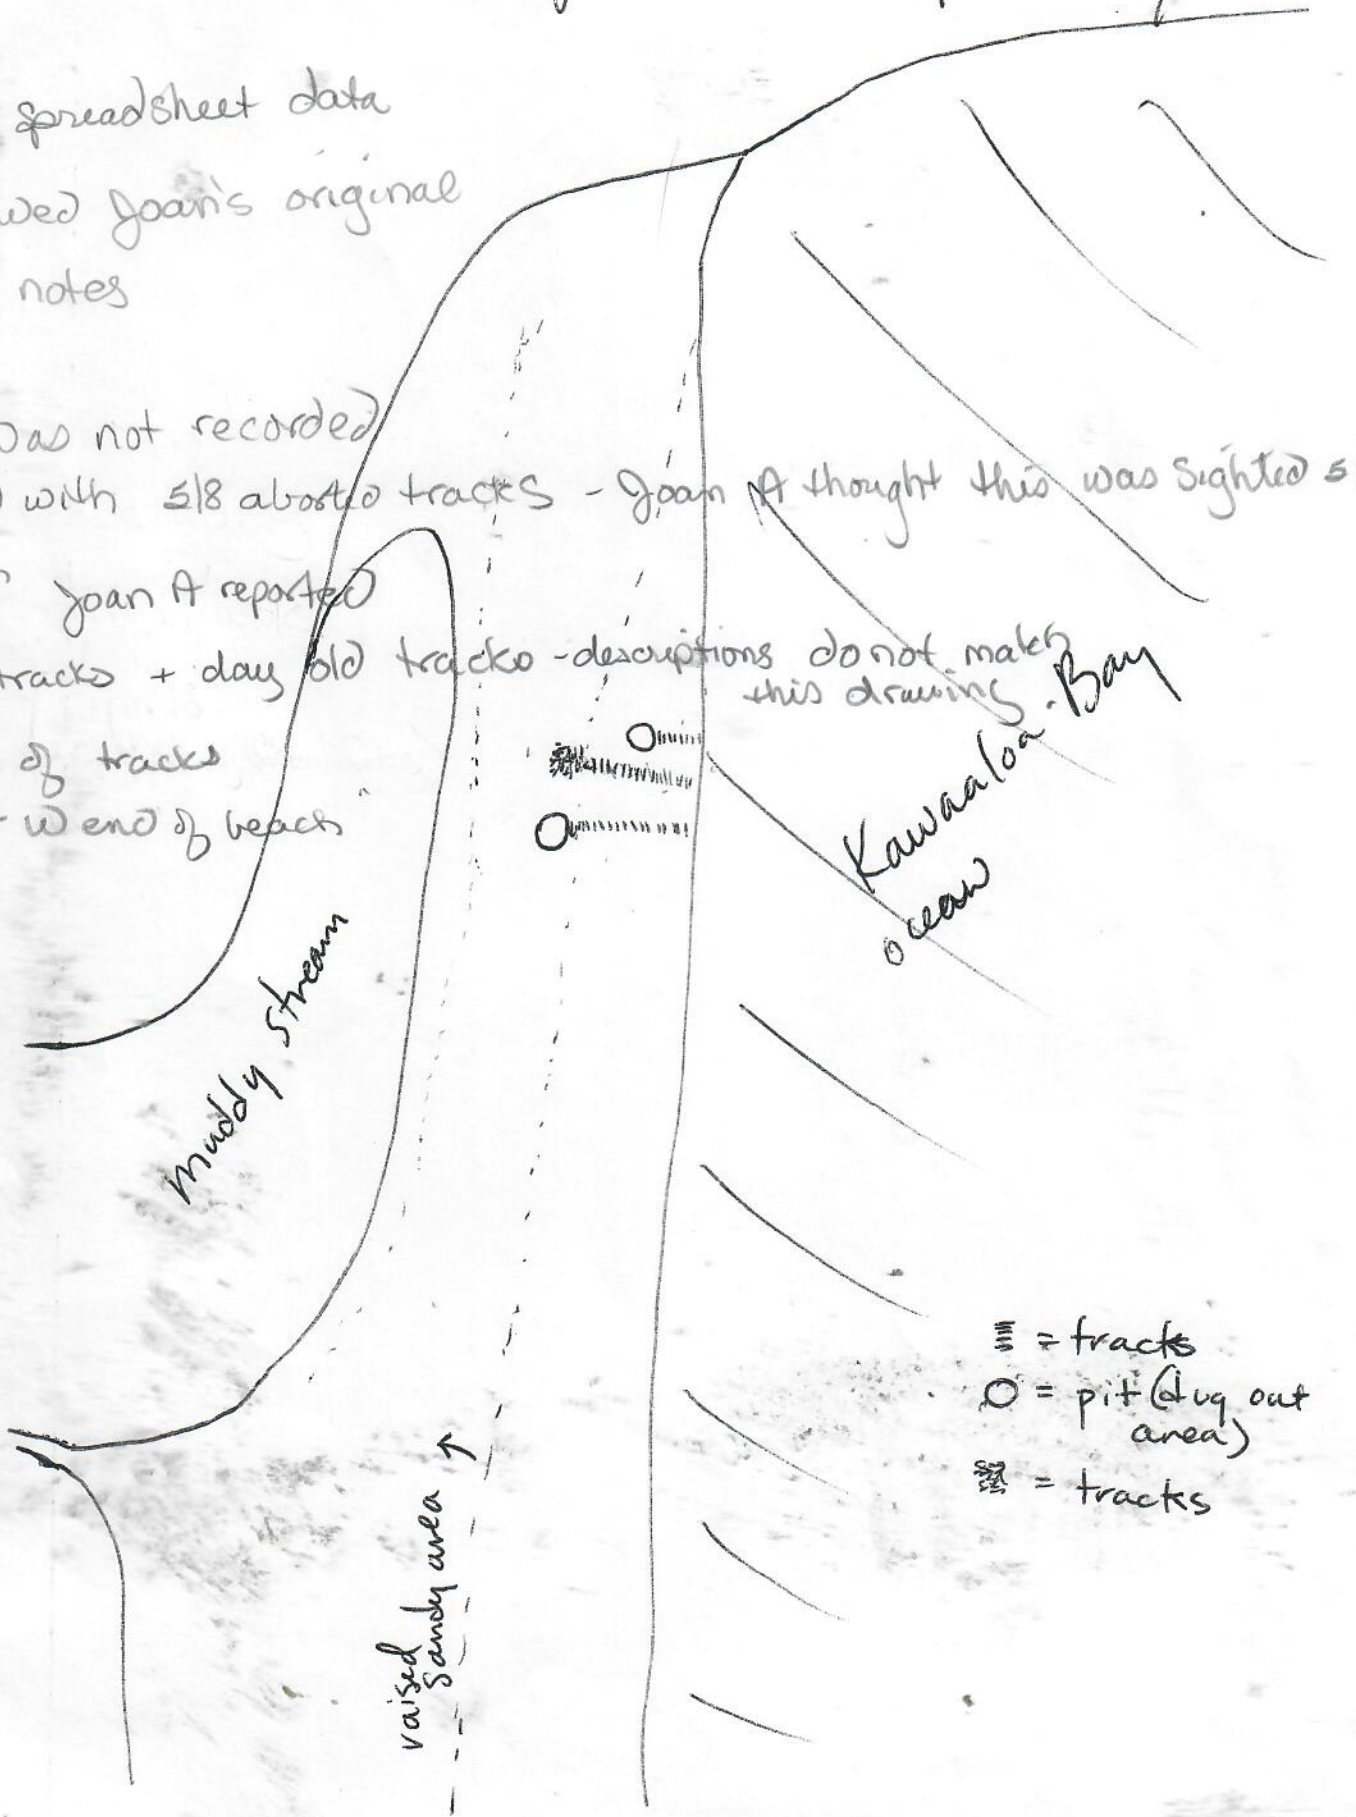 spreadsheet data
wed Joan's original
notes
was not recorded
with 5/8 aborted tracks - Joan A thought this was sighted 5
Joan A reported
tracks + day old tracks - descriptions do not match
this drawing
of tracks
W end of beach
Kawaaloa Bay
ocean
muddy stream
raised
sandy area
= tracks
= pit (dug out
area)
= tracks